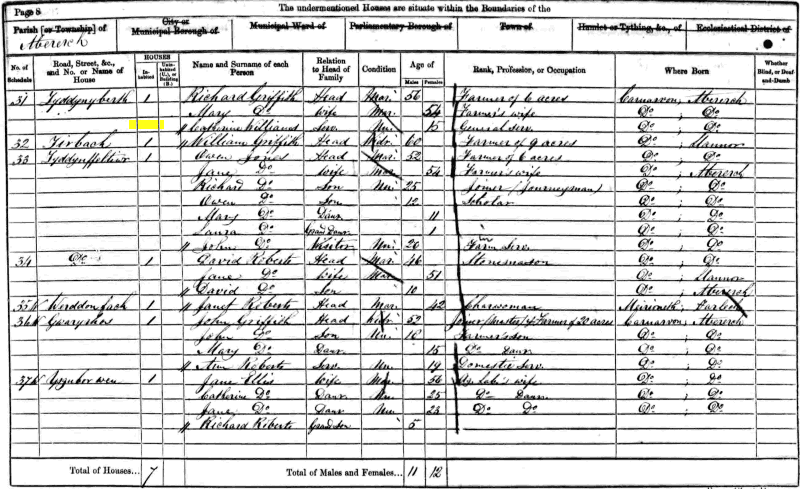 Page 8
The undermentioned Houses are situate within the Boundaries of the
Parish [or Township] of
Abererch
City or Municipal Borough of
Municipal Ward of
Parliamentary Borough of
Town of
Hamlet or Tything, &c., of
Ecclesiastical District of
No. of Schedule
Road, Street, &c., and No. or Name of House
HOUSES
Inhabited
Uninhabited (U.), or Building (B.)
Name and Surname of each Person
Relation to Head of Family
Condition
Age of
Males
Females
Rank, Profession, or Occupation
Where Born
Whether Blind, or Deaf-and-Dumb
31 1 Richard Griffith Head Mar. 56 Farmer of 6 acres Carnarvon, Abererch
Mary Do Wife Mar. 54 Farmer's wife Do ; Do
Catherine Williams Serv. Un. 15 General serv. Do ; Do
32 Tirbach 1 William Griffith Head Widr. 60 Farmer of 9 acres Do ; Llannor
33 1 Owen Jones Head Mar. 52 Farmer of 6 acres Do ; Do
Jane Do Wife Mar. 54 Farmer's wife Do ; Abererch
Richard Do Son Un. 25 Joiner (Journeyman) Do ; Do
Owen Do Son 12 Scholar Do ; Do
Mary Do Daur. 11 Do ; Do
Laura Do Grand Daur. 1 Do ; Do
John Do Visitor Un. 20 Farm Serv. Do ; Do
34 Do 1 David Roberts Head Mar. 46 Stonemason Do ; Do
Jane Do Wife Mar. 51 Do ; Llannor
David Do Son 10 Do ; Abererch
35 1 Janet Roberts Head Mar. 42 Charwoman
36 1 John Griffith Head Widr. 52 Joiner (Master) & Farmer of 20 acres Carnarvon, Abererch
John Do Son Un. 18 Farmer's son Do ; Do
Mary Do Daur. 15 Do Daur. Do ; Do
Ann Roberts Serv. Un. 19 Domestic Serv. Do ; Do
37 1 Jane Ellis Wife Mar. 56 Ag. Lab's wife Do ; Do
Catherine Do Daur. Un. 25 Do Daur. Do ; Do
Jane Do Daur. Un. 23 Do Do Do ; Do
Richard Roberts Grandson 5
Total of Houses... 7
Total of Males and Females... 11 12